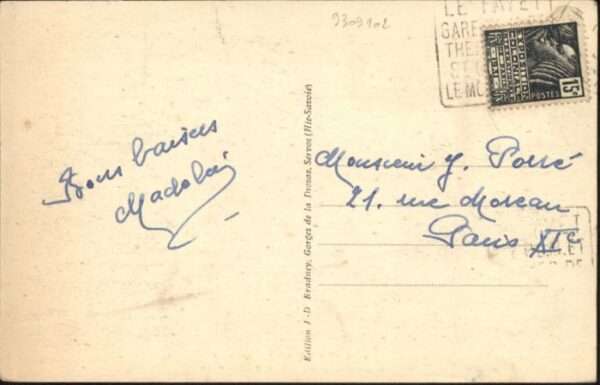 9309102
LE FAYET
GARE
THE
LE MO
EXPOSITION
COLONIALE
POSTES
15c
Bons baisers
Madelein
Monsieur J. Porré
21. rue Moreau
Paris XIIe
Edition J-D Eradney, Gorges de la Diosaz, Servoz (Hte-Savoie)